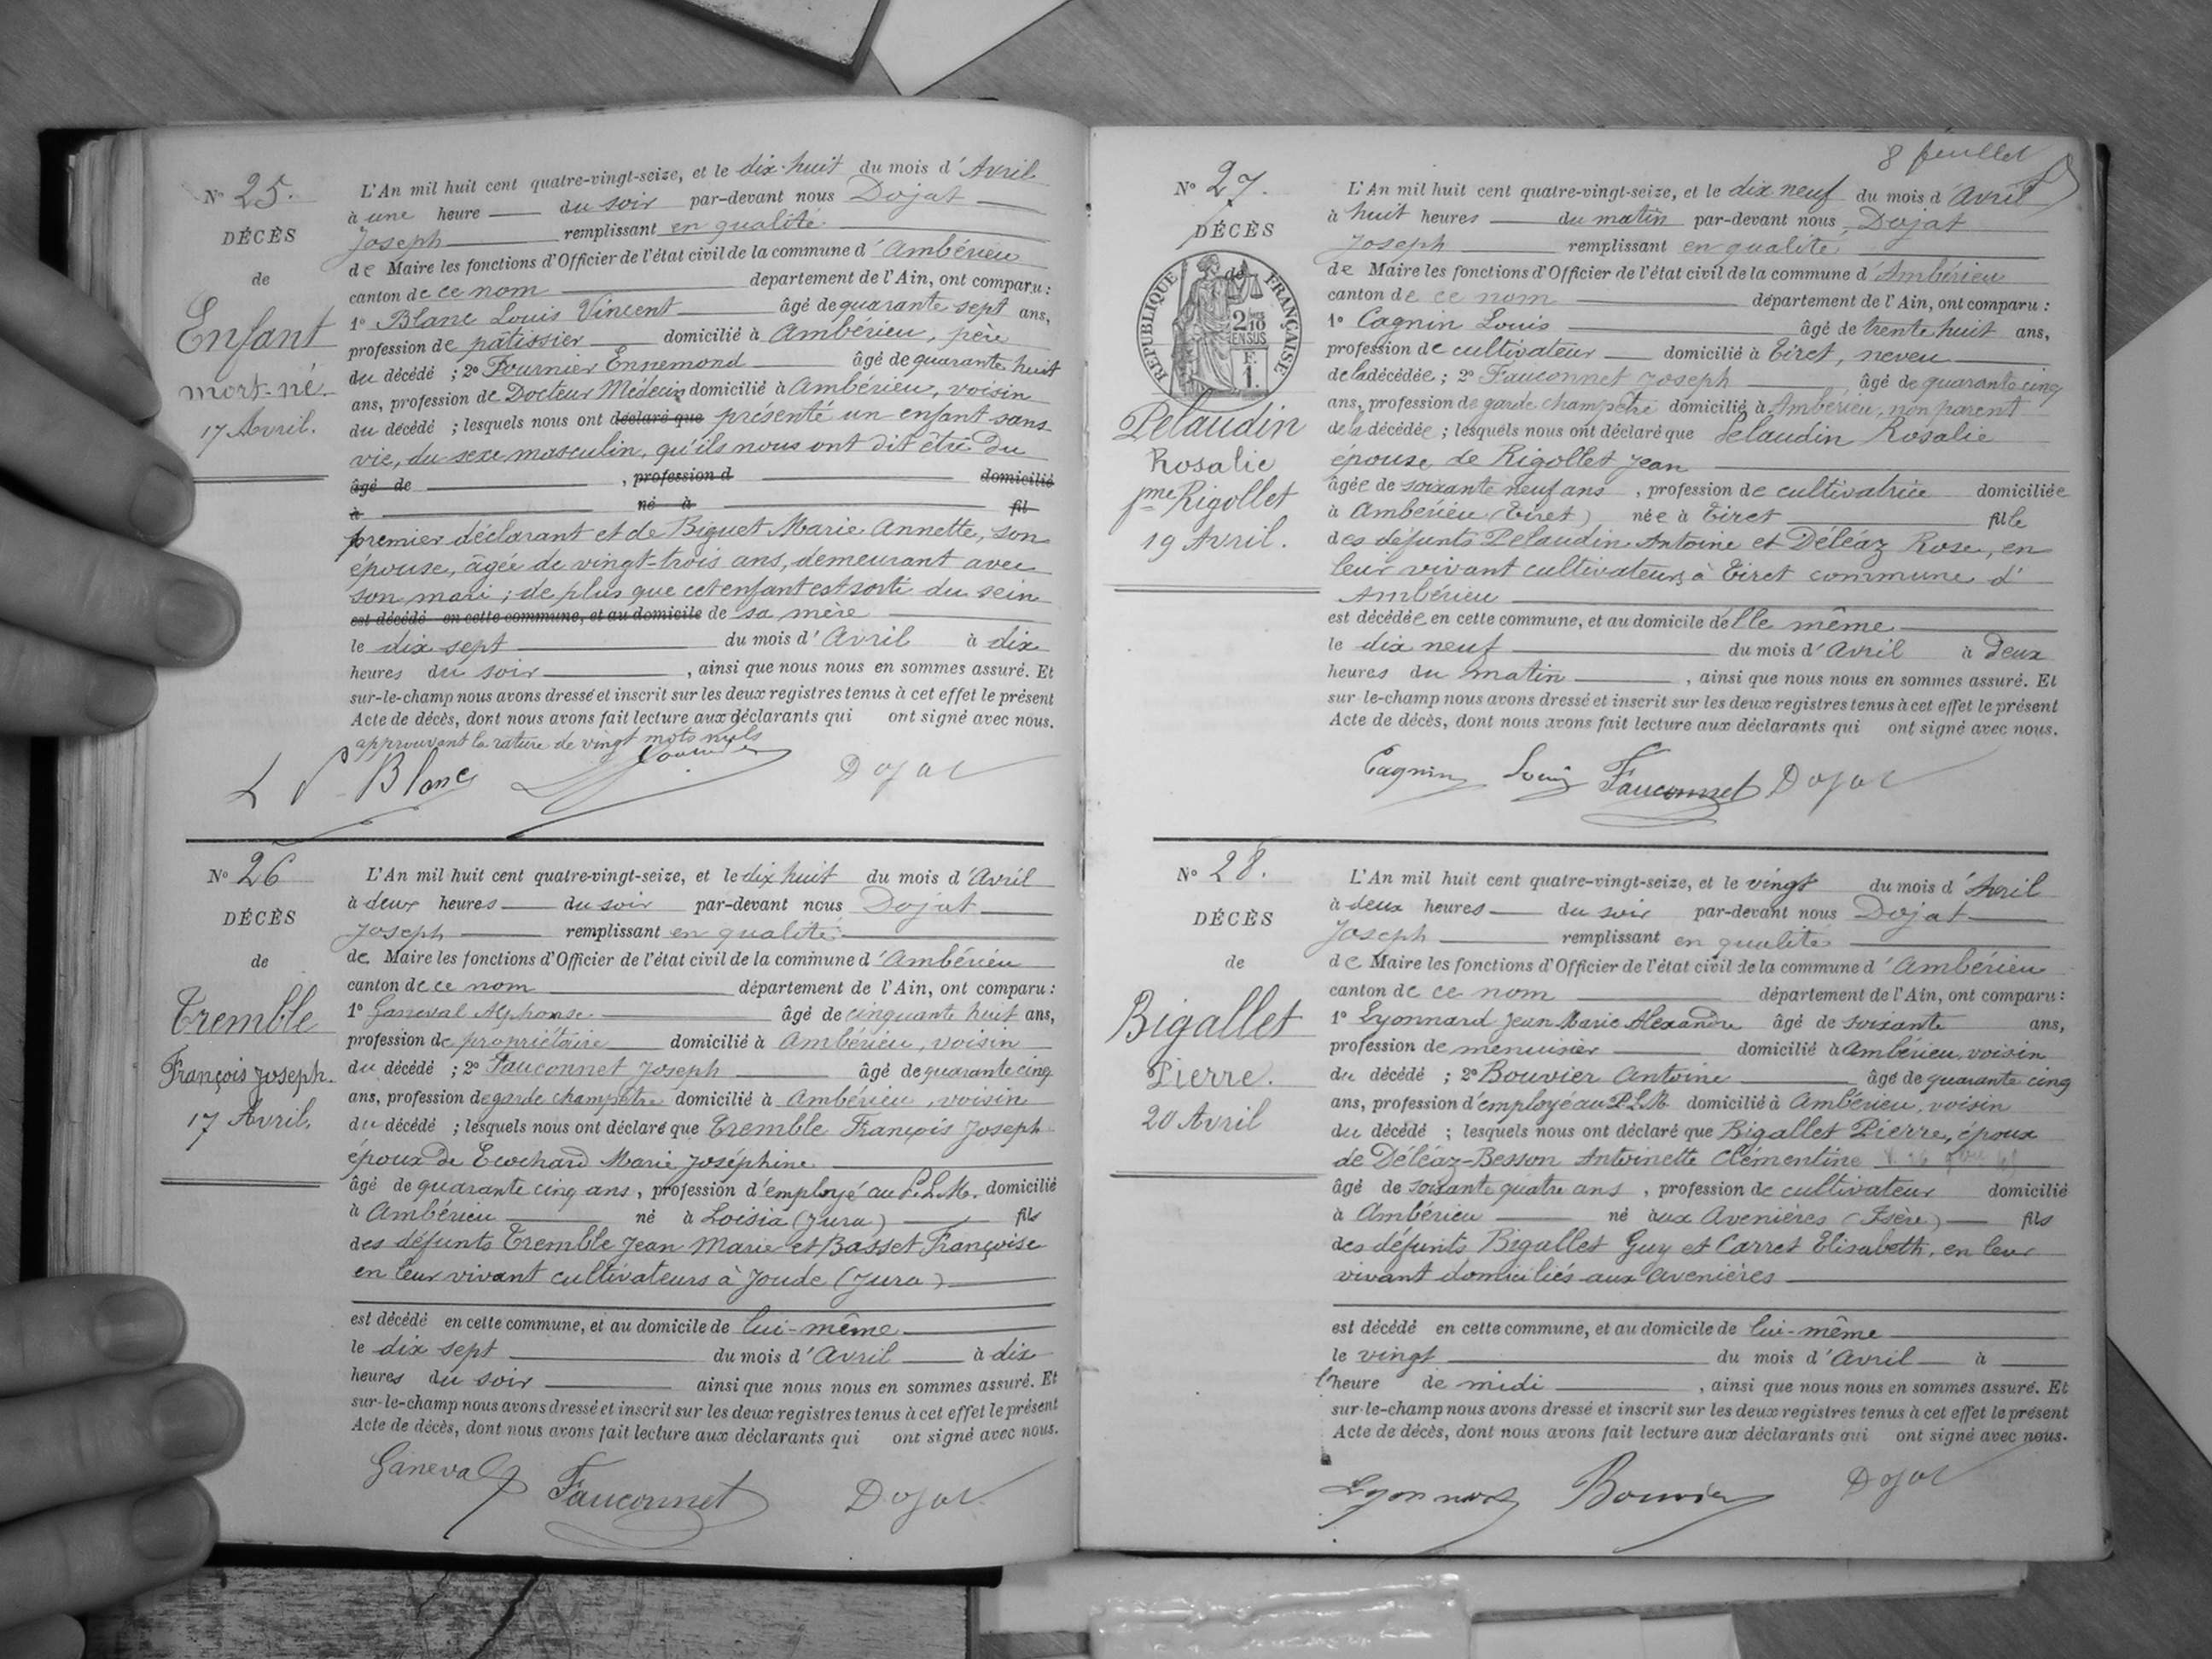 N° 25.
DÉCÈS
de
Enfant
mort-né.
17 Avril.
L'An mil huit cent quatre-vingt-seize, et le dix-huit du mois d'Avril
à une heure du soir par-devant nous Dojat
Joseph remplissant en qualité
de Maire les fonctions d'Officier de l'état civil de la commune d'Ambérieu
canton de ce nom département de l'Ain, ont comparu :
1° Blanc Louis Vincent âgé de quarante sept ans,
profession de pâtissier domicilié à Ambérieu, père
du décédé ; 2° Fournier Ennemond âgé de quarante huit
ans, profession de Docteur Médecin domicilié à Ambérieu, voisin
du décédé ; lesquels nous ont déclaré que présenté un enfant sans
vie, du sexe masculin, qu'ils nous ont dit être du
âgé de , profession d domicilié
à né à fil
premier déclarant et de Biguet Marie Annette, son
épouse, âgée de vingt-trois ans, demeurant avec
son mari ; de plus que cet enfant est sorti du sein
est décédé en cette commune, et au domicile de sa mère
le dix sept du mois d'Avril à dix
heures du soir , ainsi que nous nous en sommes assuré. Et
sur-le-champ nous avons dressé et inscrit sur les deux registres tenus à cet effet le présent
Acte de décès, dont nous avons fait lecture aux déclarants qui ont signé avec nous.
approuvant la rature de vingt mots nuls
L V Blanc Fournier Dojat
N° 26
DÉCÈS
de
Tremble
François Joseph.
17 Avril.
L'An mil huit cent quatre-vingt-seize, et le dix huit du mois d'Avril
à deux heures du soir par-devant nous Dojat
Joseph remplissant en qualité
de Maire les fonctions d'Officier de l'état civil de la commune d'Ambérieu
canton de ce nom département de l'Ain, ont comparu :
1° Ganeval Alphonse âgé de cinquante huit ans,
profession de propriétaire domicilié à Ambérieu, voisin
du décédé ; 2° Fauconnet Joseph âgé de quarante cinq
ans, profession de garde champêtre domicilié à Ambérieu, voisin
du décédé ; lesquels nous ont déclaré que Tremble François Joseph
époux de Ecochard Marie Joséphine
âgé de quarante cinq ans, profession d'employé au P.L.M. domicilié
à Ambérieu né à Loisia (Jura) fils
des défunts Tremble Jean Marie et Basset Françoise
en leur vivant cultivateurs à Joude (Jura)
est décédé en cette commune, et au domicile de lui-même
le dix sept du mois d'Avril à dix
heures du soir ainsi que nous nous en sommes assuré. Et
sur-le-champ nous avons dressé et inscrit sur les deux registres tenus à cet effet le présent
Acte de décès, dont nous avons fait lecture aux déclarants qui ont signé avec nous.
Ganeval Fauconnet Dojat
8 feuillet
N° 27.
DÉCÈS
de
RÉPUBLIQUE FRANÇAISE
2/10
EN SUS
F.
1.
Pelaudin
Rosalie
fme Rigollet
19 Avril.
L'An mil huit cent quatre-vingt-seize, et le dix neuf du mois d'Avril
à huit heures du matin par-devant nous Dojat
Joseph remplissant en qualité
de Maire les fonctions d'Officier de l'état civil de la commune d'Ambérieu
canton de ce nom département de l'Ain, ont comparu :
1° Cagnin Louis âgé de trente huit ans,
profession de cultivateur domicilié à Tiret, neveu
de la décédée ; 2° Fauconnet Joseph âgé de quarante cinq
ans, profession de garde champêtre domicilié à Ambérieu, non parent
de la décédée ; lesquels nous ont déclaré que Pelaudin Rosalie
épouse de Rigollet Jean
âgée de soixante neuf ans , profession de cultivatrice domiciliée
à Ambérieu (Tiret) née à Tiret fille
des défunts Pelaudin Antoine et Déléaz Rose, en
leur vivant cultivateurs à Tiret commune d'
Ambérieu
est décédée en cette commune, et au domicile d'elle même
le dix neuf du mois d'Avril à Deux
heures du matin , ainsi que nous nous en sommes assuré. Et
sur-le-champ nous avons dressé et inscrit sur les deux registres tenus à cet effet le présent
Acte de décès, dont nous avons fait lecture aux déclarants qui ont signé avec nous.
Cagnin Louis Fauconnet Dojat
N° 28.
DÉCÈS
de
Bigallet
Pierre.
20 Avril
L'An mil huit cent quatre-vingt-seize, et le vingt du mois d'Avril
à deux heures du soir par-devant nous Dojat
Joseph remplissant en qualité
de Maire les fonctions d'Officier de l'état civil de la commune d'Ambérieu
canton de ce nom département de l'Ain, ont comparu :
1° Lyonnard Jean Marie Alexandre âgé de soixante ans,
profession de menuisier domicilié à Ambérieu, voisin
du décédé ; 2° Bouvier Antoine âgé de quarante cinq
ans, profession d'employé au P.L.M. domicilié à Ambérieu, voisin
du décédé ; lesquels nous ont déclaré que Bigallet Pierre, époux
de Déléaz-Besson Antoinette Clémentine
âgé de soixante quatre ans , profession de cultivateur domicilié
à Ambérieu né aux Avenières (Isère) fils
des défunts Bigallet Guy et Carret Elisabeth, en leur
vivant domiciliés aux Avenières
est décédé en cette commune, et au domicile de lui-même
le vingt du mois d'Avril à
l'heure de midi , ainsi que nous nous en sommes assuré. Et
sur-le-champ nous avons dressé et inscrit sur les deux registres tenus à cet effet le présent
Acte de décès, dont nous avons fait lecture aux déclarants qui ont signé avec nous.
Lyonnard Bouvier Dojat